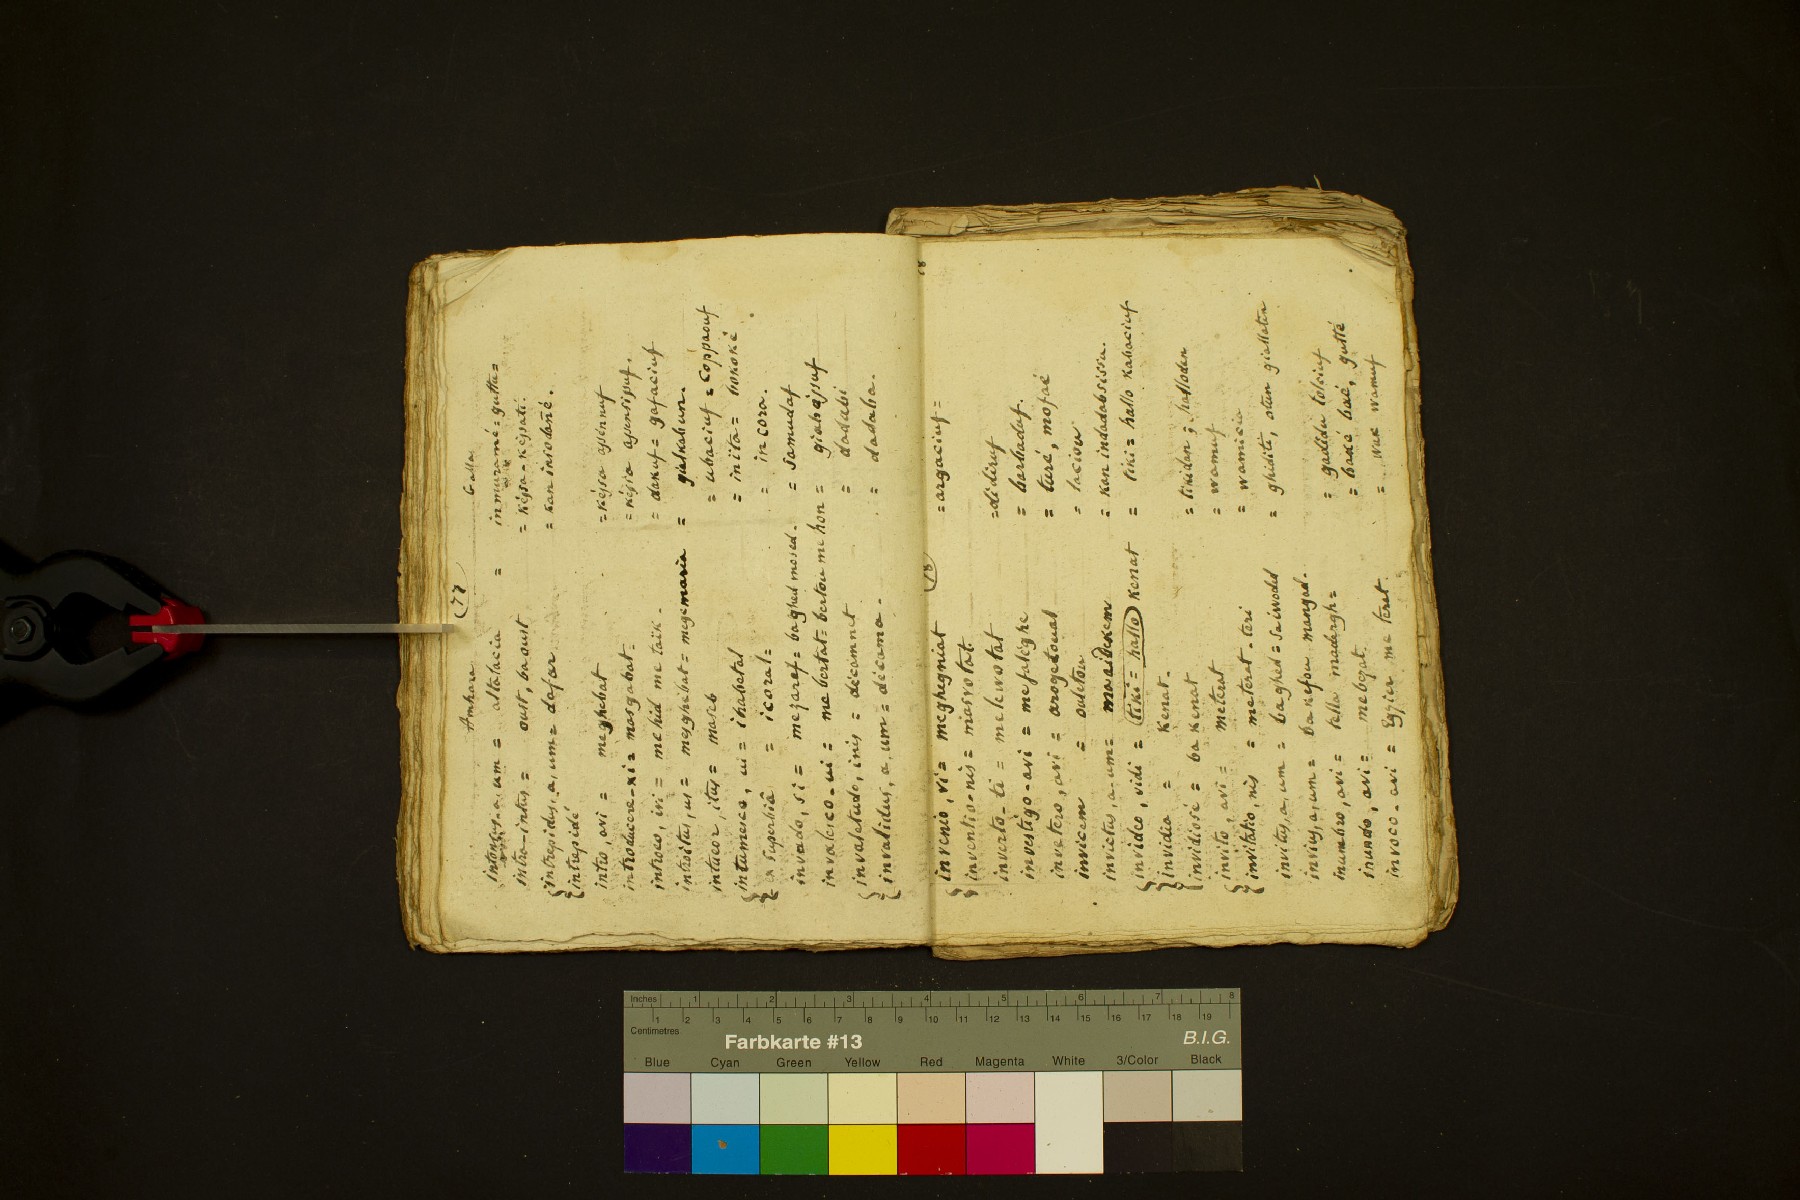 (77
Amhara Galla
intonsus-a-um = altalacia = inmuramé=gutta=
intra-intus = oust, baoust = Kéjsa-Kéjsati.
intrepidus, a, um = dafar = kan insodané.
intrepidé
intro, avi = meghebat = Kéjsa
introducere-xi = masgabat =
introeo, ivi = mehid metaik. = dakuf = gafaciuf
intuitus, us = meghebat = megemaria = gialkabun.
intueor, itus = maseb = ubaciuf = coppaouf
intumesco, ui = ihabetal = inita = bokoké
ex superbia = icoral = = incora.
invado, si = mezaraf = baghed mesed. = samudaf
invalesco-ui = mebertat = bertou mehon = giabajsuf
invaletudo, inis = décamnet = dadabi
invalidus, a, um = décama. = dadaba.
78
(78)
invenio, vi = megheghniat = argaciuf =
inventio-nis = masvotat
inverto-ti = melewotat = didiruf
investigo-avi = mefaleghe = barbaduf.
invetero, avi = arogetoual = turé, mofaé
invicem = ouletou = laciou
invictus, a-um = maaidekem = kan indadabsissu.
invideo, vidi = (tiki = hallo) kenat = tiki = hallo kabaciuf
invidia = kenat.
invidiosé = bakenat = tikidan; hallodan
invito, avi = meterat = wamuf
invitatio, nis = meterat-teri = wamicia
invitus, a, um = baghed = saiwoded = ghiditi, otun giallatin
invius, a, um = bakefou mangad.
inumbro, avi = tella madargh = = gadidu tolciuf
inundo, avi = mebegat. = bacé baé, gutté
invoco-avi = Egzier meterat. = wak wamuf
Inches 1 2 3 4 5 6 7 8
Centimetres 1 2 3 4 5 6 7 8 9 10 11 12 13 14 15 16 17 18 19
Farbkarte #13 B.I.G.
Blue Cyan Green Yellow Red Magenta White 3/Color Black